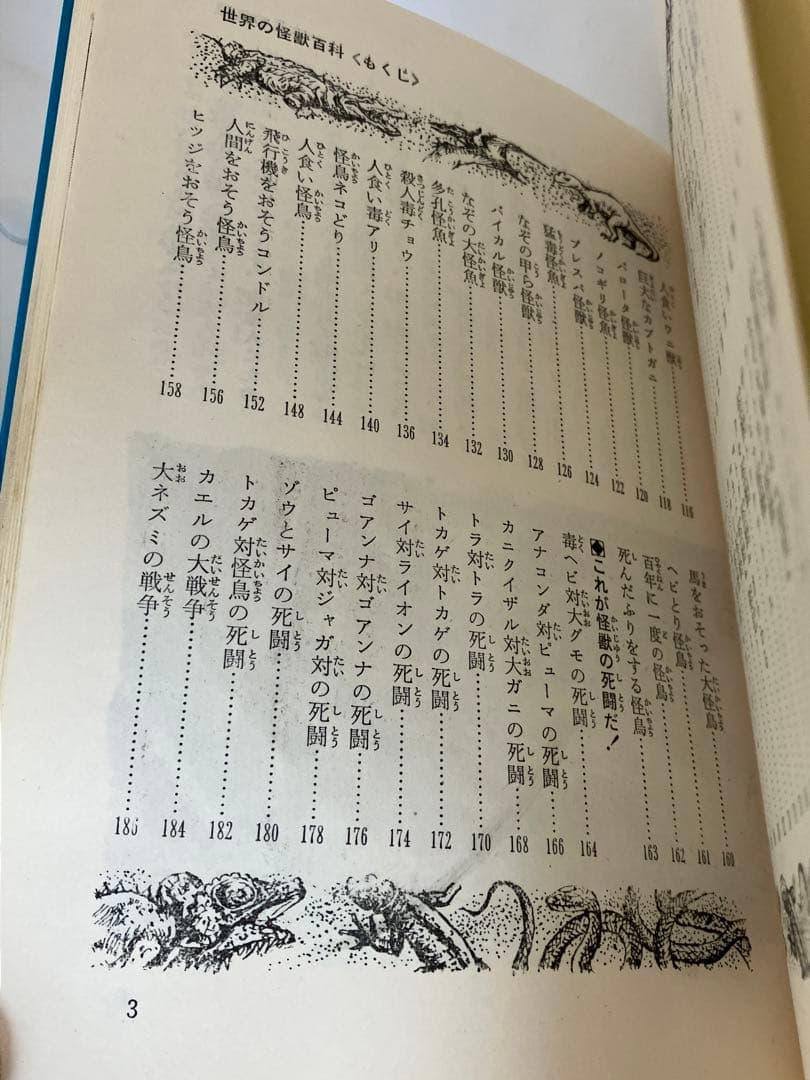 世界の怪獣百科〈もくじ〉
人食いワニ獣……116
巨大なカブトガニ……118
バロータ怪獣……120
ノコギリ怪魚……122
プレスバ怪獣……124
猛毒怪魚……126
なぞの甲ら怪獣……128
バイカル怪獣……130
なぞの大怪魚……132
多孔怪魚……134
殺人毒チョウ……136
人食い毒アリ……140
怪鳥ネコどり……144
人食い怪鳥……148
飛行機をおそうコンドル……152
人間をおそう怪鳥……156
ヒツジをおそう怪鳥……158
馬をおそった大怪鳥……160
ヘビとり怪鳥……161
百年に一度の怪鳥……162
死んだふりをする怪鳥……163
◆これが怪獣の死闘だ!
毒ヘビ対大グモの死闘……164
アナコンダ対ピューマの死闘……166
カニクイザル対大ガニの死闘……168
トラ対トラの死闘……170
トカゲ対トカゲの死闘……172
サイ対ライオンの死闘……174
ゴアンナ対ゴアンナの死闘……176
ピューマ対ジャガ対の死闘……178
ゾウとサイの死闘……180
トカゲ対怪鳥の死闘……182
カエルの大戦争……184
大ネズミの戦争……186
3